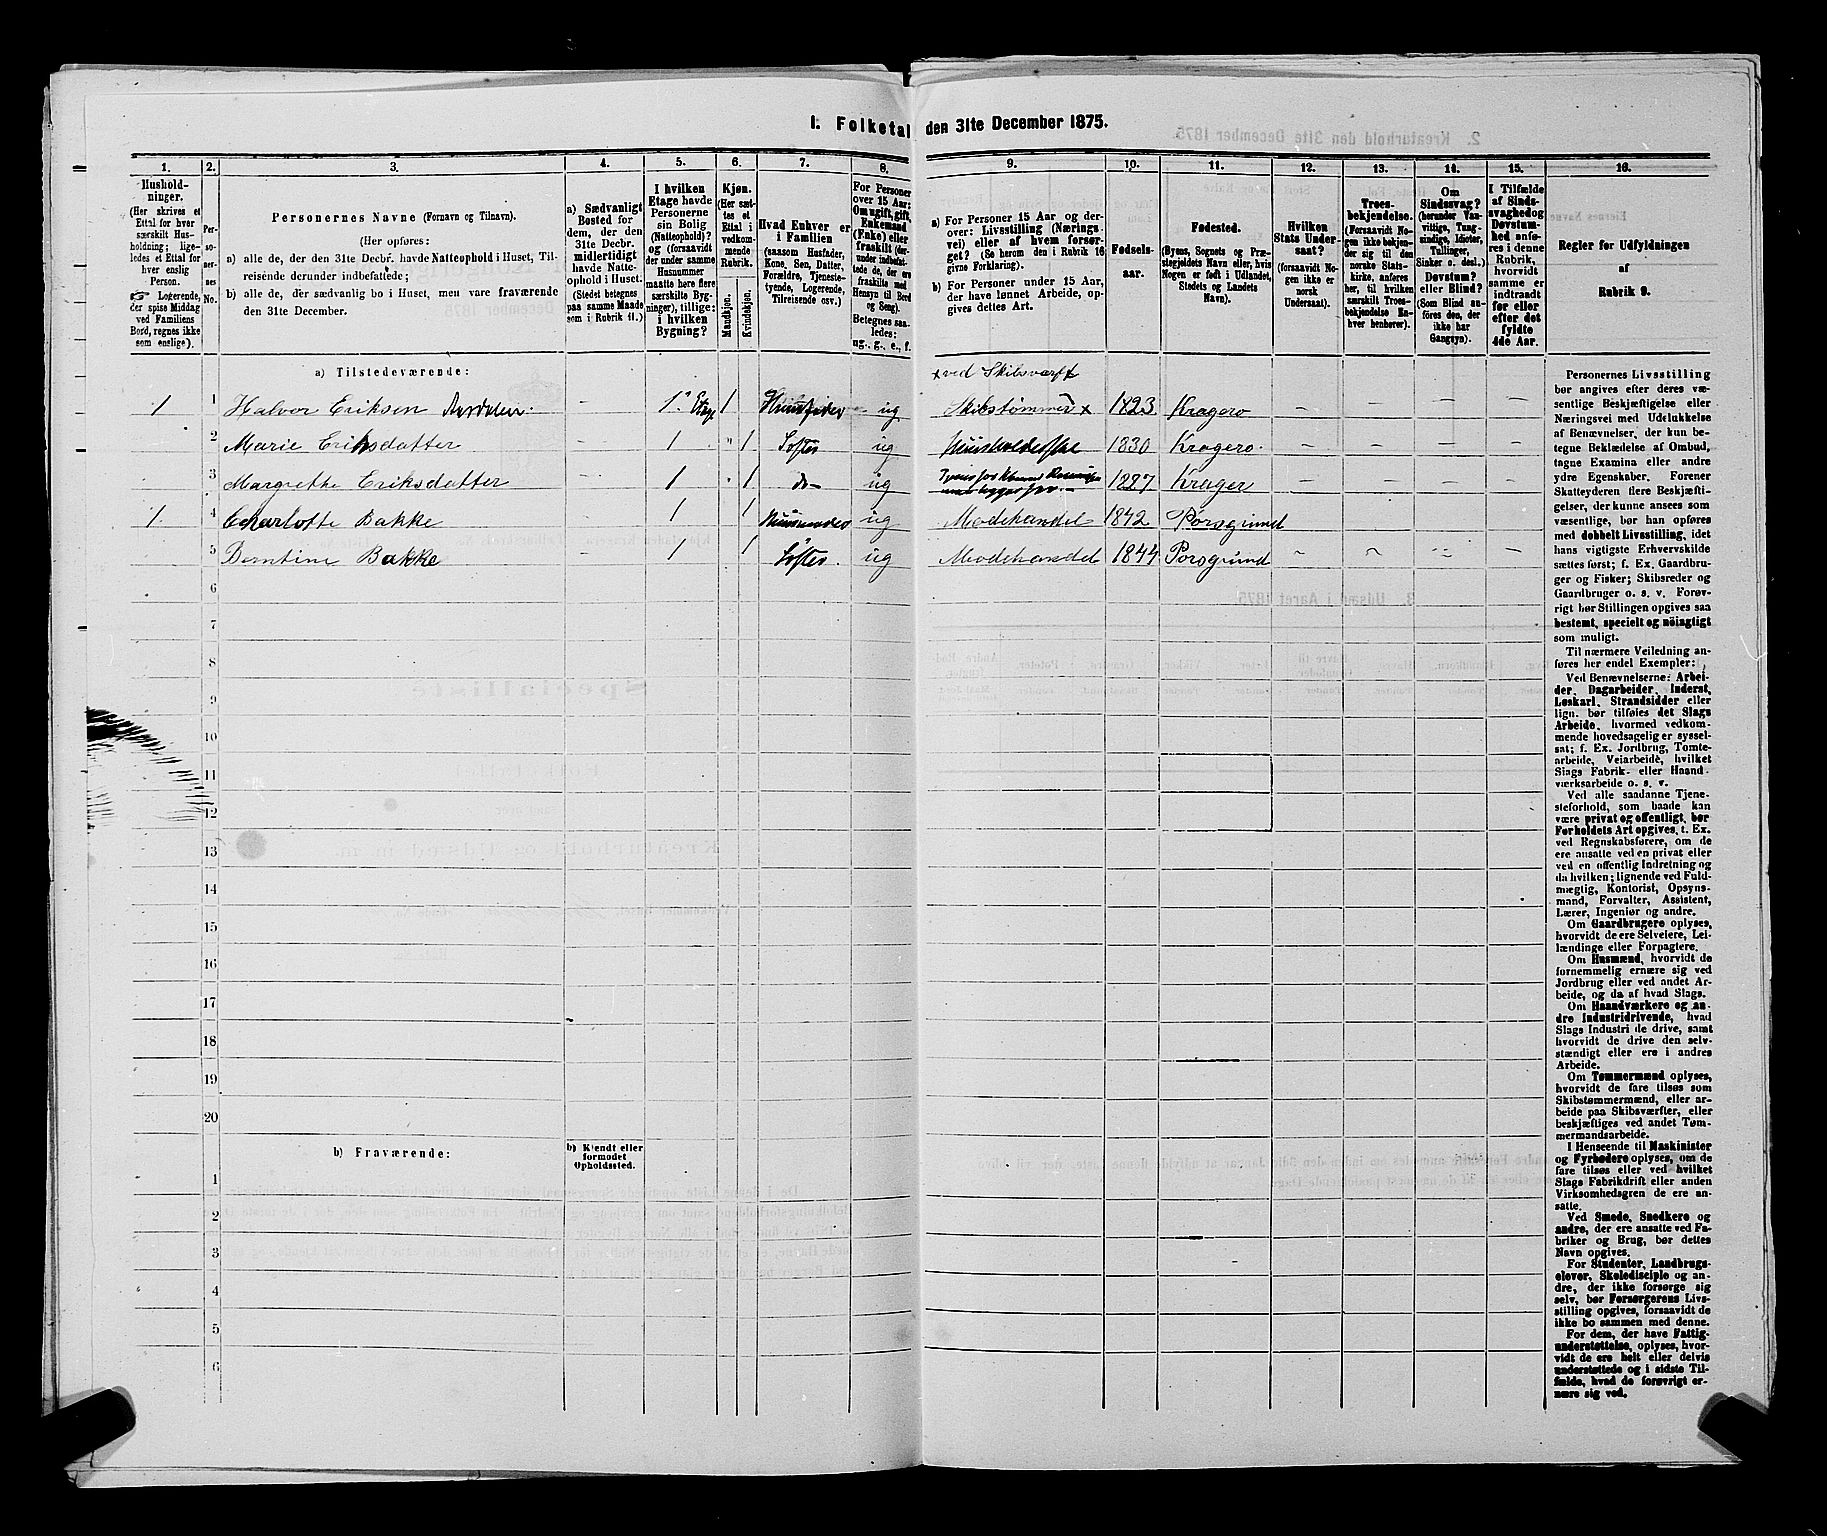 I. Folketal den 31te December 1875.
1. 2. 3. 4. 5. 6. 7. 8. 9. 10. 11. 12. 13. 14. 15. 16.
Husholdninger.
(Her skrives et
Ettal for hver
særskilt Husholdning;
ligeledes et Ettal for
hver enslig
Person.
☞ Logerende,
der spise Middag
ved Familiens
Bord, regnes ikke
som enslige).
Personernes No.
Personernes Navne (Fornavn og Tilnavn).
(Her opføres:
a) alle de, der den 31te Decbr. havde Natteophold i Huset, Tilreisende derunder indbefattede;
b) alle de, der sædvanlig bo i Huset, men vare fraværende
den 31te December.
a) Sædvanligt
Bosted for
dem, der den
31te Decbr.
midlertidigt
havde Natteophold i Huset.
(Stedet betegnes
paa samme Maade
som i Rubrik 11.)
I hvilken
Etage havde
Personerne
sin Bolig
(Natteophold)?
og (forsaavidt
der under samme
Husnummer
maatte høre flere
særskilte Bygninger), tillige:
i hvilken
Bygning?
Kjøn.
(Her sættes et
Ettal i
vedkommende
Rubrik.
Mandkjøn. Kvindekjøn.
Hvad Enhver er
i Familien
(saasom Husfader,
Kone, Søn, Datter,
Forældre, Tjenestetyende, Logerende,
Tilreisende osv.)
For Personer
over 15 Aar:
Om ugift, gift,
Enkemand
(Enke) eller
fraskilt (herunder indbefattede de, der ere
fraskilte med
Hensyn til Bord
og Seng).
Betegnes saaledes:
ug., g., e., f.
a) For Personer 15 Aar og derover: Livsstilling (Næringsvei) eller af hvem forsørget? (Se herom den i Rubrik 16
givne Forklaring).
b) For Personer under 15 Aar,
der have lønnet Arbeide, opgives dettes Art.
Fødselsaar.
Fødested.
(Byens, Sognets og Præstegjeldets Navn eller, hvis
Nogen er født i Udlandet,
Stedets og Landets
Navn).
Hvilken
Stats Undersaat?
(forsaavidt Nogen ikke er
norsk
Undersaat).
Troesbekjendelse.
(Forsaavidt Nogen ikke bekjender sig til den
norske Statskirke, anføres
her, til hvilken
særskilt Troesbekjendelse Enhver henhører).
Om
Sindssvag?
(herunder Vanvittige, Tungsindige, Idioter,
Tullinger,
Sinker o. desl.)
Døvstum?
eller Blind?
(Som Blind anføres den, der
ikke har
Gangsyn).
I Tilfælde
af Sindssvaghed og
Døvstumhed anføres i denne
Rubrik,
hvorvidt
samme er
indtraadt
før eller
efter det
fyldte
4de Aar.
Regler for Udfyldningen
af
Rubrik 9.
a) Tilstedeværende:
x ved Skibsværft
1 1 Halvor Eriksen Aasdalen. – 1ste Etag. 1 Huusfader ug Skibstømmer x 1823 Kragero – – – –
2 Marie Eriksdatter – 1 " 1 Søster ug Huusholderske 1830 Kragero. – – – –
3 Margrethe Eriksdatter – 1 . 1 do– ug 1827 Krager – – – –
1. 4 Charlotte Bakke 1 1 ug Modehandel 1842 Porsgrund – – – –
5 Berntine Bakke – 1 1 Søster. ug Modehandel 1844 Porsgrund ~ ~ ~ –
6
7
8
9
10
11
12
13
14
15
16
17
18
19
20
b) Fraværende:
b) Kjendt eller
formodet
Opholdssted.
1
2
3
4
5
6
Personernes Livsstilling
bør angives efter deres væsentlige Beskjæftigelse eller
Næringsvei med Udelukkelse
af Benævnelser, der kun betegne Beklædelse af Ombud,
tagne Examina eller andre
ydre Egenskaber. Forener
Skatteyderen flere Beskjæftigelser, der kunne ansees som
væsentlige, bør han opføres
med dobbelt Livsstilling, idet
hans vigtigste Erhvervskilde
sættes først; f. Ex. Gaardbruger og Fisker; Skibsreder og
Gaardbruger o. s. v. Forøvrigt bør Stillingen opgives saa
bestemt, specielt og nöiagtigt
som muligt.
Til nærmere Veiledning anføres her endel Exempler:
Ved Benævnelserne: Arbeider, Dagarbeider, Inderst,
Løskarl, Strandsidder eller
lign. bør tilføies det Slags
Arbeide, hvormed vedkommende hovedsagelig er sysselsat; f. Ex. Jordbrug, Tomtearbeide, Veiarbeide, hvilket
Slags Fabrik- eller Haandværksarbeide o. s. v.
Ved alle saadanne Tjenesteforhold, som baade kan
være privat og offentligt, bør
Forholdets Art opgives, t. Ex.
ved Regnskabsførere, om de
ere ansatte ved en privat eller
ved en offentlig Indretning og
da hvilken; lignende ved Fuldmægtig, Kontorist, Opsynsmand, Forvalter, Assistent,
Lærer, Ingeniør og andre.
Om Gaardbrugere oplyses,
hvorvidt de ere Selveiere, Leilændinge eller Forpagtere.
Om Husmænd, hvorvidt de
fornemmelig ernære sig ved
Jordbrug eller ved andet Arbeide, og da af hvad Slags.
Om Haandværkere og andre Industridrivende, hvad
Slags Industri de drive, samt
hvorvidt de drive den selvstændigt eller ere i andres
Arbeide.
Om Tømmermænd oplyses,
hvorvidt de fare tilsøs som
Skibstømmermænd, eller arbeide paa Skibsværfter, eller
beskjæftiges ved andet Tømmermandsarbeide.
I Henseende til Maskinister
og Fyrbødere oplyses, om de
fare tilsøs eller ved hvilket
Slags Fabrikdrift eller anden
Virksomhedsgren de ere ansatte.
Ved Smede, Snedkere og
andre, der ere ansatte ved Fabriker og Brug, bør dettes
Navn opgives.
For Studenter, Landbrugselever, Skoledisciple og andre, der ikke forsørge sig
selv, bør Forsørgerens Livsstilling opgives, forsaavidt de
ikke bo sammen med denne.
For dem, der have Fattigunderstøttelse, oplyses, hvorvidt de ere helt eller delvis
understøttede og i sidste Tilfælde, hvad de forøvrigt ernære sig ved.